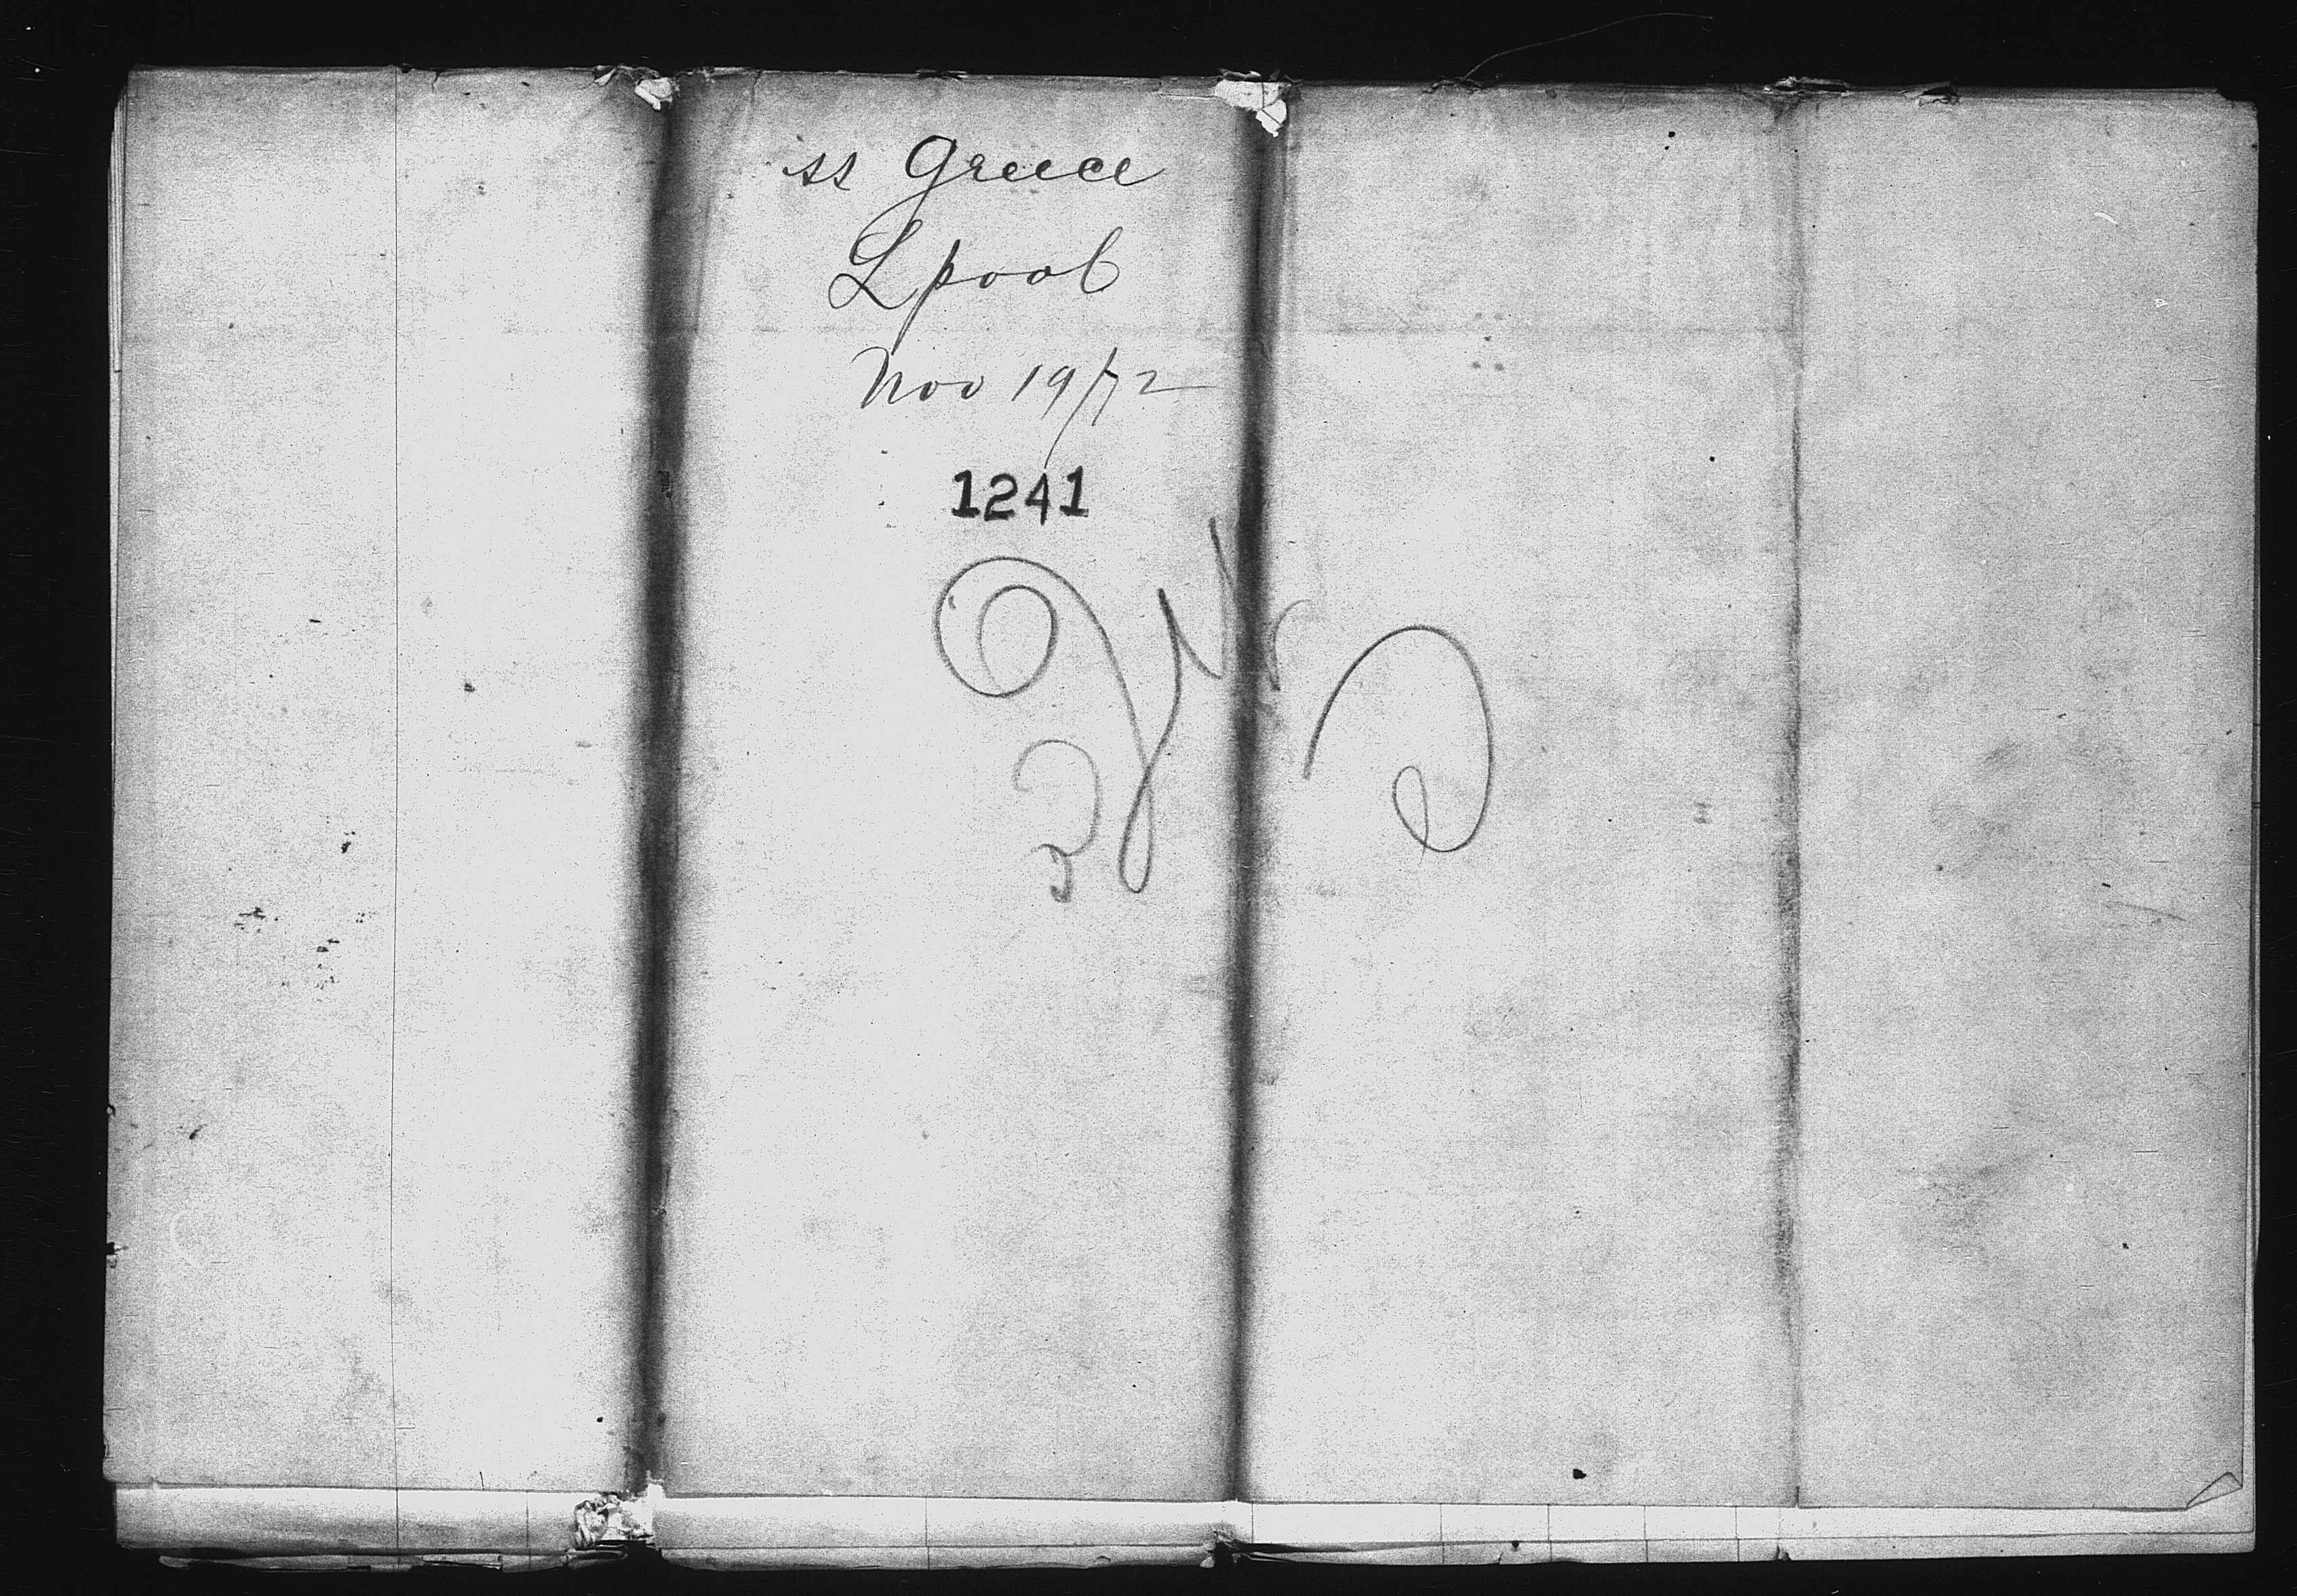 ss Greece
Lpool
Nov 19/72
1241